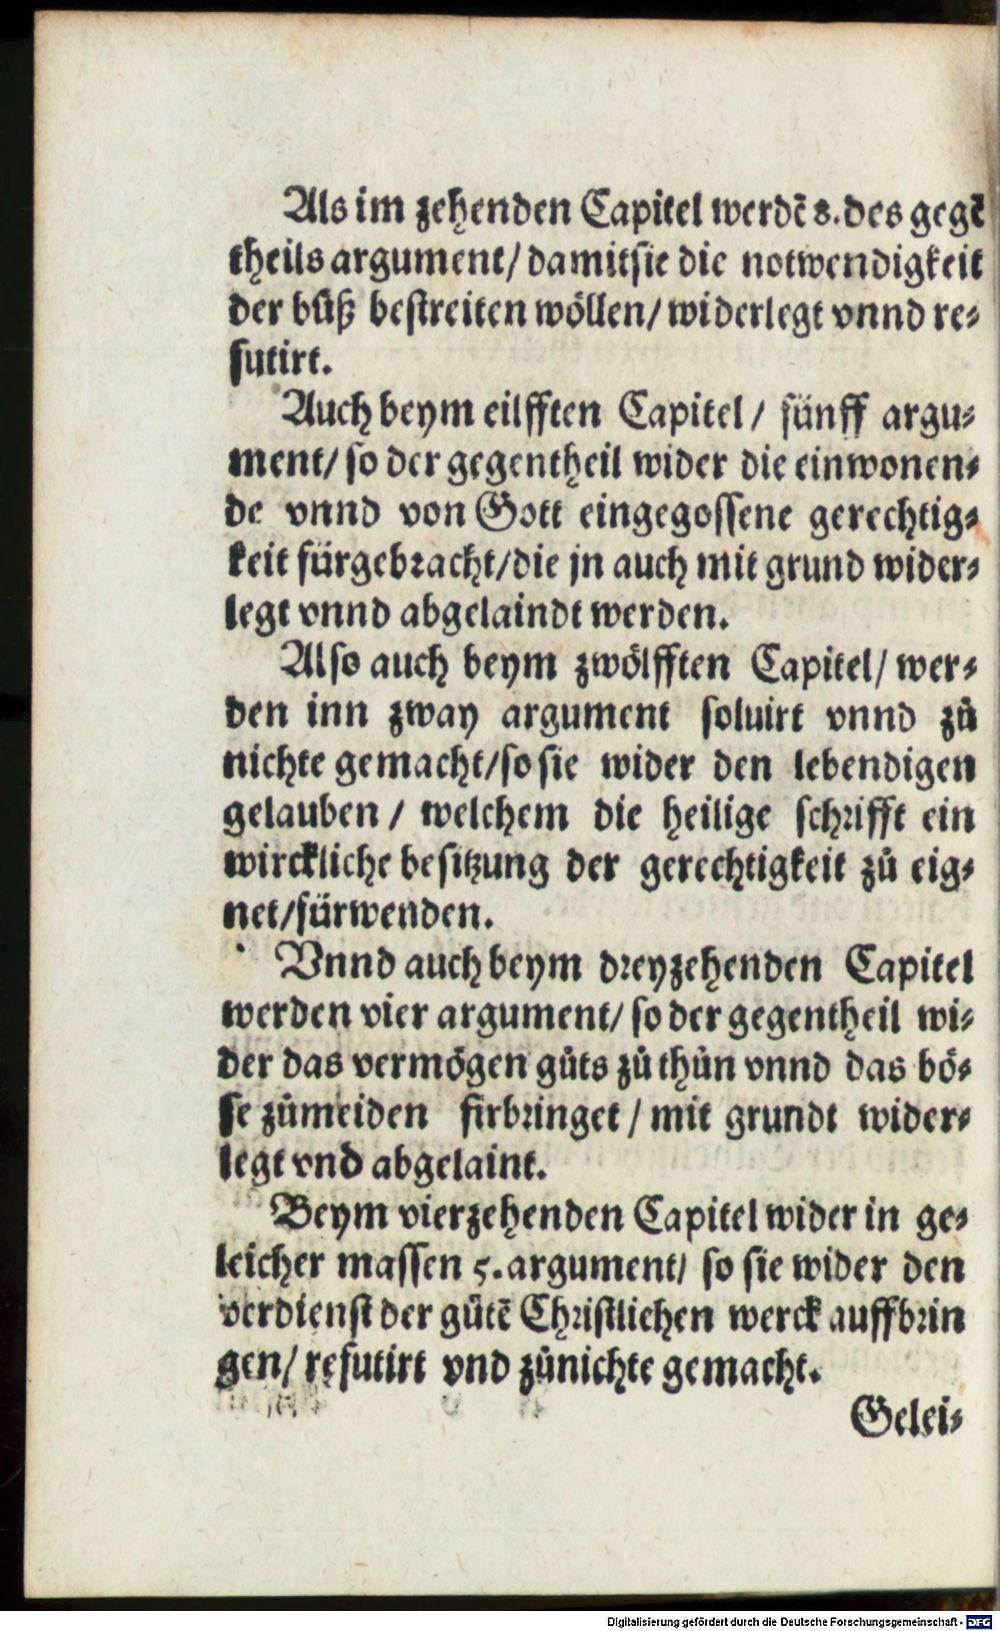 Als im zehenden Capitel werdē 8. des gegē
theils argument/ damit sie die notwendigkeit
der bůß bestreiten wöllen/ widerlegt vnnd re-
futirt.
Auch beym eilfften Capitel/ fünff argu-
ment/ so der gegentheil wider die einwonen-
de vnnd von Gott eingegossene gerechtig-
keit fürgebracht/ die jn auch mit grund wider-
legt vnnd abgelaindt werden.
Also auch beym zwölfften Capitel/ wer-
den inn zway argument soluirt vnnd zů
nichte gemacht/ so sie wider den lebendigen
gelauben/ welchem die heilige schrifft ein
wirckliche besitzung der gerechtigkeit zů eig-
net/ fürwenden.
Vnnd auch beym dreyzehenden Capitel
werden vier argument/ so der gegentheil wi-
der das vermögen gůts zů thůn vnnd das bö-
se zůmeiden firbringet/ mit grundt wider-
legt vnd abgelaint.
Beym vierzehenden Capitel wider in ge-
leicher massen 5. argument/ so sie wider den
verdienst der gůtē Christlichen werck auffbrin
gen/ refutirt vnd zůnichte gemacht.
Gelei-
Digitalisierung gefördert durch die Deutsche Forschungsgemeinschaft - DFG